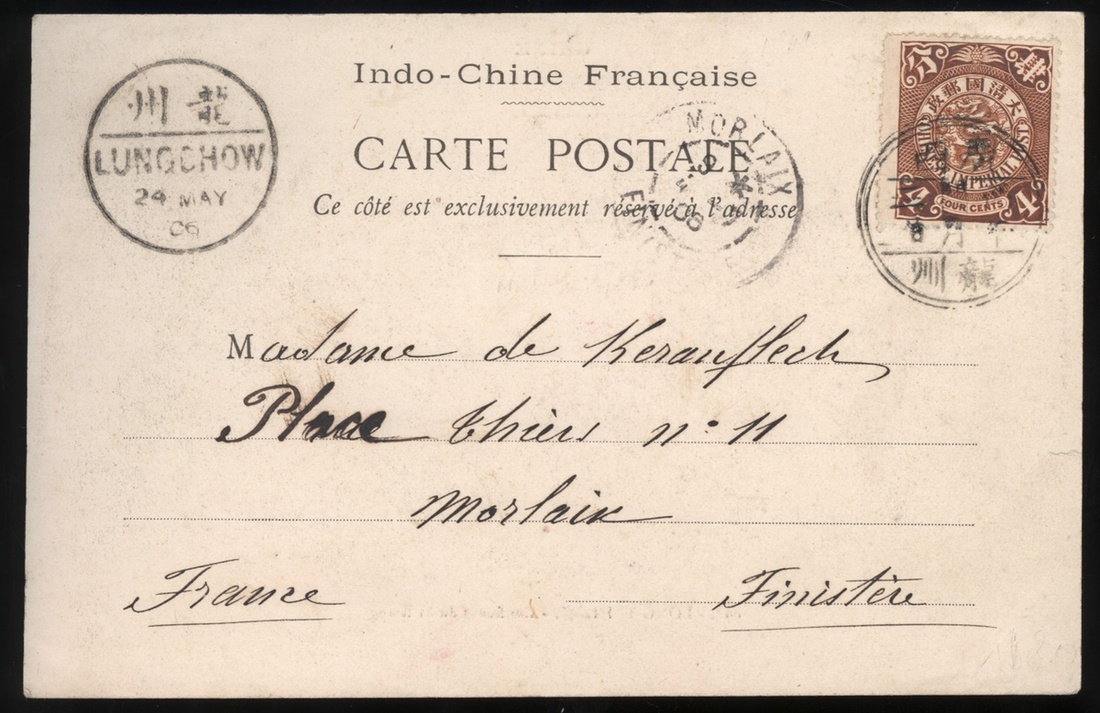 Indo-Chine Française
CARTE POSTALE
Ce côté est exclusivement réservé à l'adresse
州 龍
LUNGCHOW
24 MAY
06
MORLAIX
06
大清國郵政
CHINESE IMPERIAL POST
4 FOUR CENTS 4
州 龍
Madame de Kerauflech
Place Thiers n° 11
Morlaix
France
Finistère